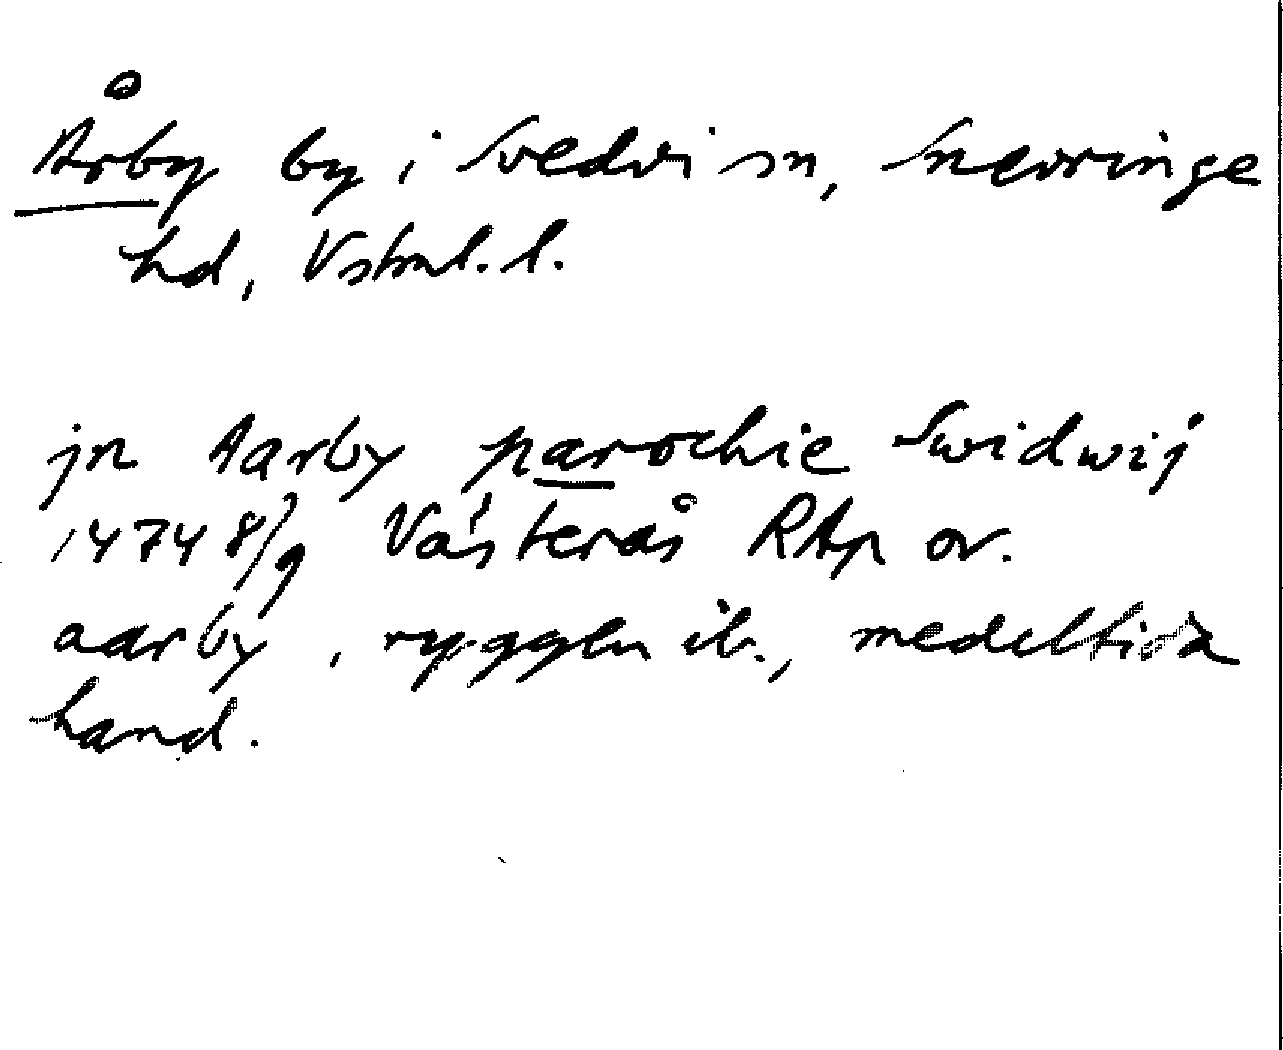 Årby by i Svedvi sn, Snevringe
hd, Vstml. l.
jn Aarby parochie Swidwij
1474 8/9 Västerås RAp or.
aarby, ryggen ib., medeltida
hand.